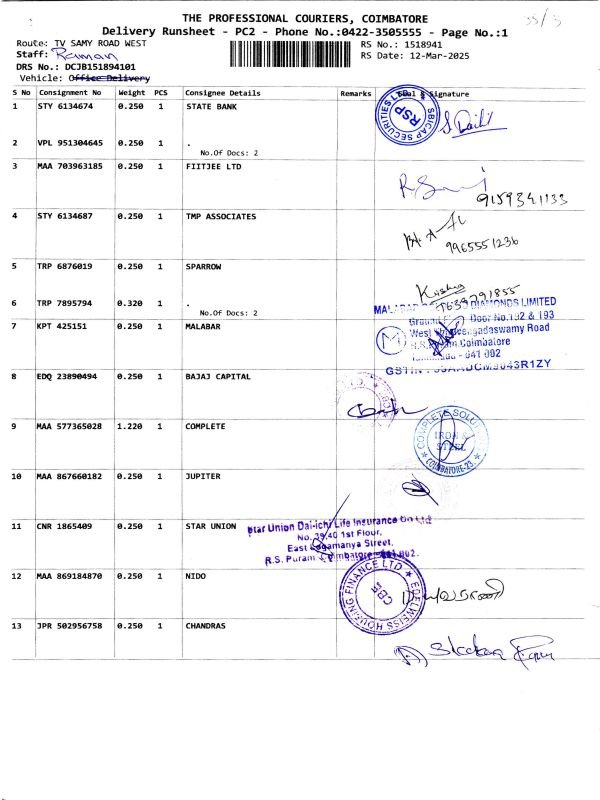 THE PROFESSIONAL COURIERS, COIMBATORE
Delivery Runsheet - PC2 - Phone No.:0422-3505555 - Page No.:1
Route: TV SAMY ROAD WEST
RS No.: 1518941
Staff: Raman
RS Date: 12-Mar-2025
DRS No.: DCJB151894101
Vehicle: Office Delivery
S No Consignment No Weight PCS Consignee Details Remarks Seal & Signature
1 STY 6134674 0.250 1 STATE BANK
SBICAP SECURITIES LTD
RSP
2 VPL 951304645 0.250 1 .
No.Of Docs: 2
3 MAA 703963185 0.250 1 FIITJEE LTD
9159341133
4 STY 6134687 0.250 1 TMP ASSOCIATES
9965551236
5 TRP 6876019 0.250 1 SPARROW
Krishna
7639791855
6 TRP 7895794 0.320 1 .
No.Of Docs: 2
DIAMONDS LIMITED
7 KPT 425151 0.250 1 MALABAR
Door No.192 & 193
West Road
Coimbatore
641 002
8 EDQ 23890494 0.250 1 BAJAJ CAPITAL
9 MAA 577365028 1.220 1 COMPLETE
COMPLETE
IRON &
STEEL
COIMBATORE-23
10 MAA 867660182 0.250 1 JUPITER
11 CNR 1865409 0.250 1 STAR UNION
Star Union Dai-ichi Life Insurance Co Ltd
No. 39,40 1st Floor,
East Street,
R.S. Puram
12 MAA 869184870 0.250 1 NIDO
EDELWEISS HOUSING FINANCE LTD
CBE
13 JPR 502956758 0.250 1 CHANDRAS